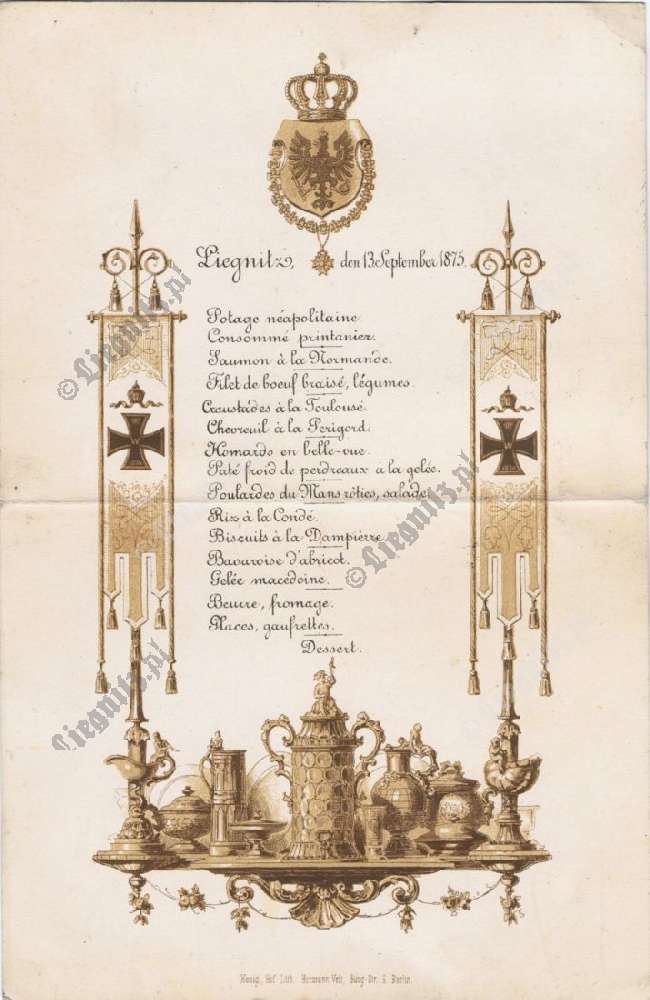 Liegnitz, den 13. September 1875.
Potage néapolitaine.
Consommé printanier.
Saumon à la Normande.
Filet de boeuf braisé, légumes.
Croustades à la Toulouse.
Chevreuil à la Perigord.
Homards en belle-vue.
Paté froid de perdreaux a la gelée.
Poulardes du Mans rôties, salade.
Riz à la Condé.
Biscuits à la Dampierre.
Bavaroise d'abricot.
Gelée macedoine.
Beurre, fromage.
Glaces, gaufrettes.
Dessert.
W
W
© Liegnitz.pl
© Liegnitz.pl
Liegnitz.pl
Königl. Hof. Lith. Hermann Veit, Burg-Str. 6. Berlin.